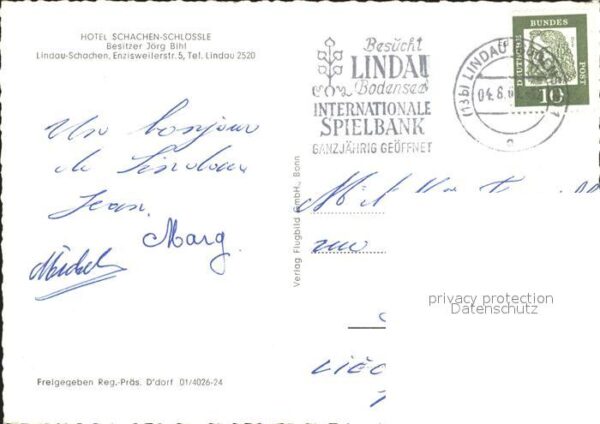 HOTEL SCHACHEN-SCHLÖSSLE
Besitzer Jörg Bihl
Lindau-Schachen, Enzisweilerstr. 5, Tel. Lindau 2520
Un bonjour
de Lindau
Jean
Marg.
Michel
Freigegeben Reg.-Präs. D'dorf 01/4026-24
Verlag Flugbild GmbH., Bonn
Besucht
LINDAU
Bodensee
INTERNATIONALE
SPIELBANK
GANZJÄHRIG GEÖFFNET
(13b) LINDAU
04.8.
DEUTSCHE BUNDES POST
10
privacy protection
Datenschutz